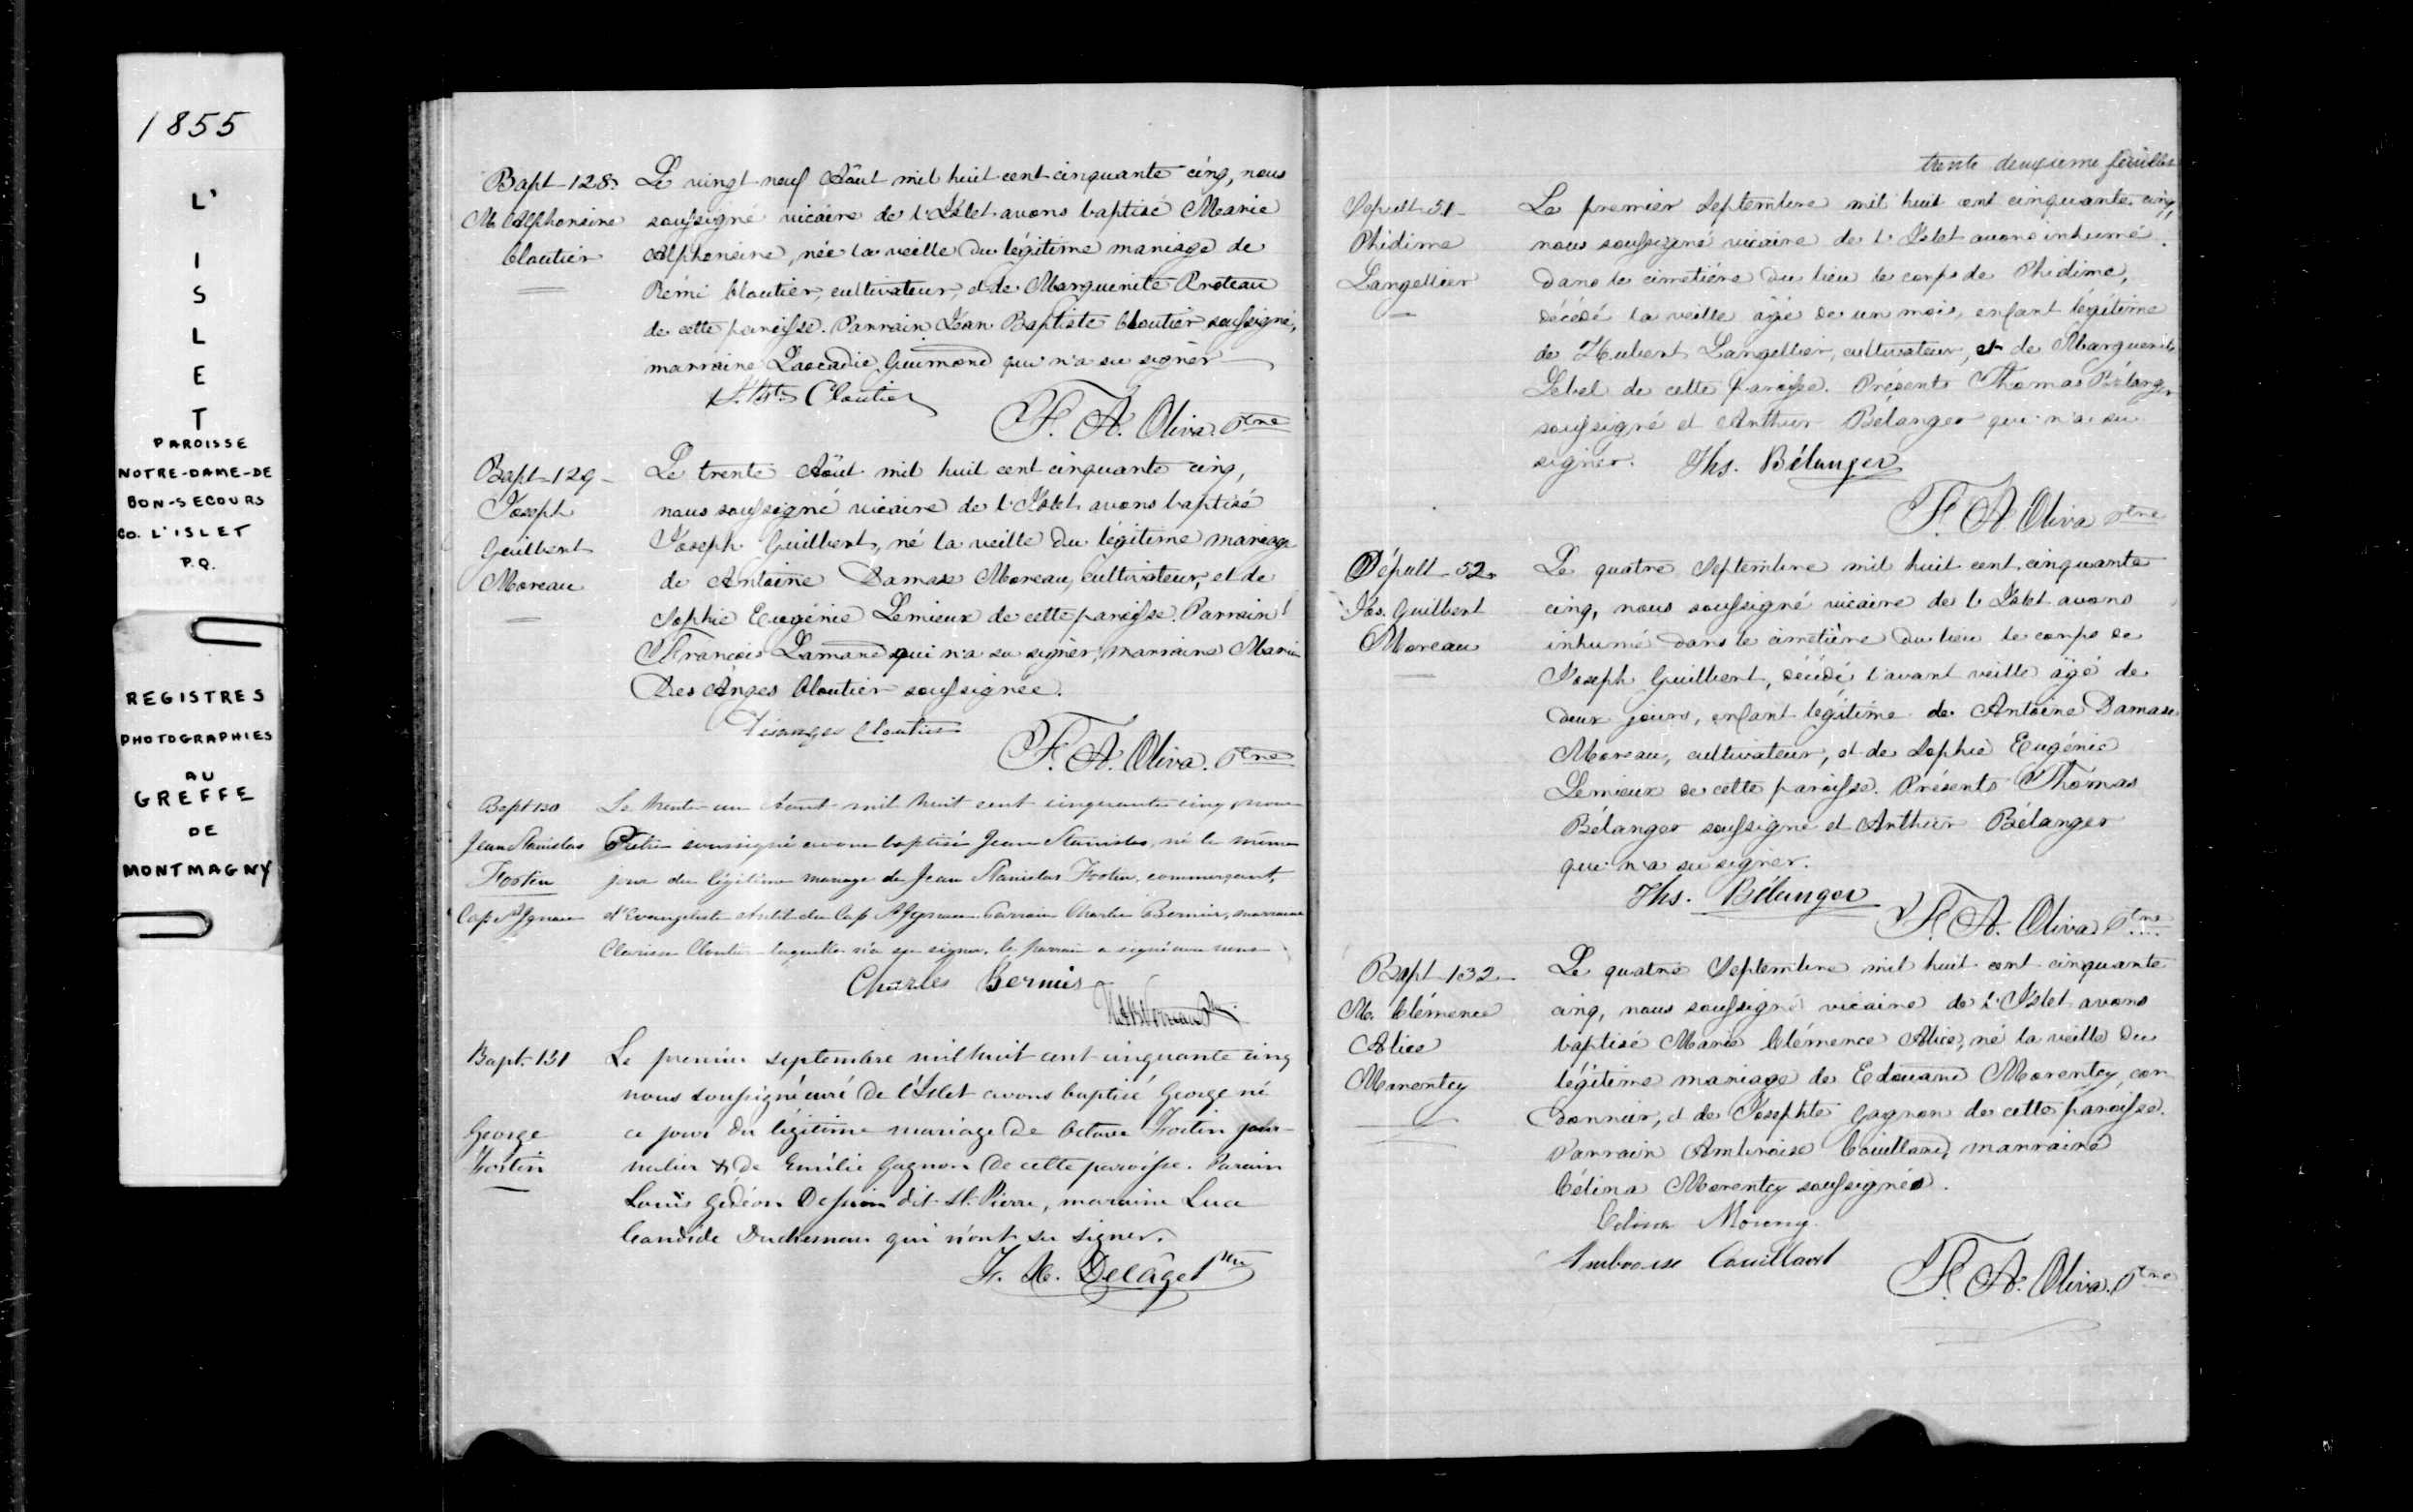 1855
L'
I
S
L
E
T
PAROISSE
NOTRE-DAME-DE
BON-SECOURS
CO. L'ISLET
P.Q.
REGISTRES
PHOTOGRAPHIES
AU
GREFFE
DE
MONTMAGNY
Bapt-128
M. Alphonsine
Cloutier
Le vingt neuf Août mil huit cent cinquante cinq, nous
soussigné vicaire de l'Islet avons baptisé Marie
Alphonsine, née la veille du légitime mariage de
Rémi Cloutier, cultivateur, et de Marguerite Proteau
de cette paroisse. Parrain Jean Baptiste Cloutier soussigné,
marraine Laocadie Guimond qui n'a su signer
J. Bte Cloutier
F. A. Oliva Ptre
Bapt-129-
Joseph
Guilbert
Moreau
Le trente Août mil huit cent cinquante cinq,
nous soussigné vicaire de l'Islet avons baptisé
Joseph Guilbert, né la veille du légitime mariage
de Antoine Damase Moreau, cultivateur, et de
Sophie Eugénie Lemieux de cette paroisse. Parrain
François Lamarre qui n'a su signer, marraine Marie
Des Anges Cloutier soussignée.
Désanges Cloutier
F. A. Oliva. Ptre
Bapt 130
Jean Stanislas
Fortin
Cap St Ignace
Le trente un Août mil huit cent cinquante cinq, nous
Prêtre soussigné avons baptisé Jean Stanislas, né le même
jour du légitime mariage de Jean Stanislas Fortin, commerçant,
d'Evangeliste du Cap St Ignace. Parrain Charles Bernier, marraine
Clarisse Cloutier laquelle n'a su signer. le parrain a signé avec nous
Charles Bernier
Bapt. 131
George
Fortin
Le premier septembre mil huit cent cinquante cinq
nous soussigné curé de l'Islet avons baptisé George né
ce jour du légitime mariage de Octave Fortin jour-
nalier & de Emélie Gagnon de cette paroisse. Parain
Louis Gédéon Dessein dit St. Pierre, maraine Luce
Candide Duchesneau qui n'ont su signer.
F. X. Delâge Ptre
trente deuxieme feuillet
Sepult-51-
Phidime
Langellier
Le premier Septembre mil huit cent cinquante cinq,
nous soussigné vicaire de l'Islet avons inhumé
dans le cimetière du lieu le corps de Phidime,
décédé la veille âgé de un mois, enfant légitime
de Hubert Langellier, cultivateur, et de Marguerite
Lebel de cette paroisse. Présents Thomas Bélanger
soussigné et Arthur Bélanger qui n'a su
signer. Ths. Bélanger
F. A. Oliva Ptre
Sépult-52-
Jos. Guilbert
Moreau
Le quatre Septembre mil huit cent cinquante
cinq, nous soussigné vicaire de l'Islet avons
inhumé dans le cimetière du lieu le corps de
Joseph Guilbert, décédé l'avant veille âgé de
deux jours, enfant légitime de Antoine Damase
Moreau, cultivateur, et de Sophie Eugénie
Lemieux de cette paroisse. Présents Thomas
Bélanger soussigné et Arthur Bélanger
qui n'a su signer.
Ths. Bélanger
F. A. Oliva Ptre
Bapt-132-
M. Clémence
Alice
Morentcy
Le quatre Septembre mil huit cent cinquante
cinq, nous soussigné vicaire de l'Islet avons
baptisé Marie Clémence Alice, né la veille du
légitime mariage de Edouard Morentcy, cor
donnier, et de Josephte Gagnon de cette paroisse.
Parrain Ambroise Couillard, marraine
Célina Morentcy soussignés.
Celina
Ambroise Couillard
F. A. Oliva. Ptre